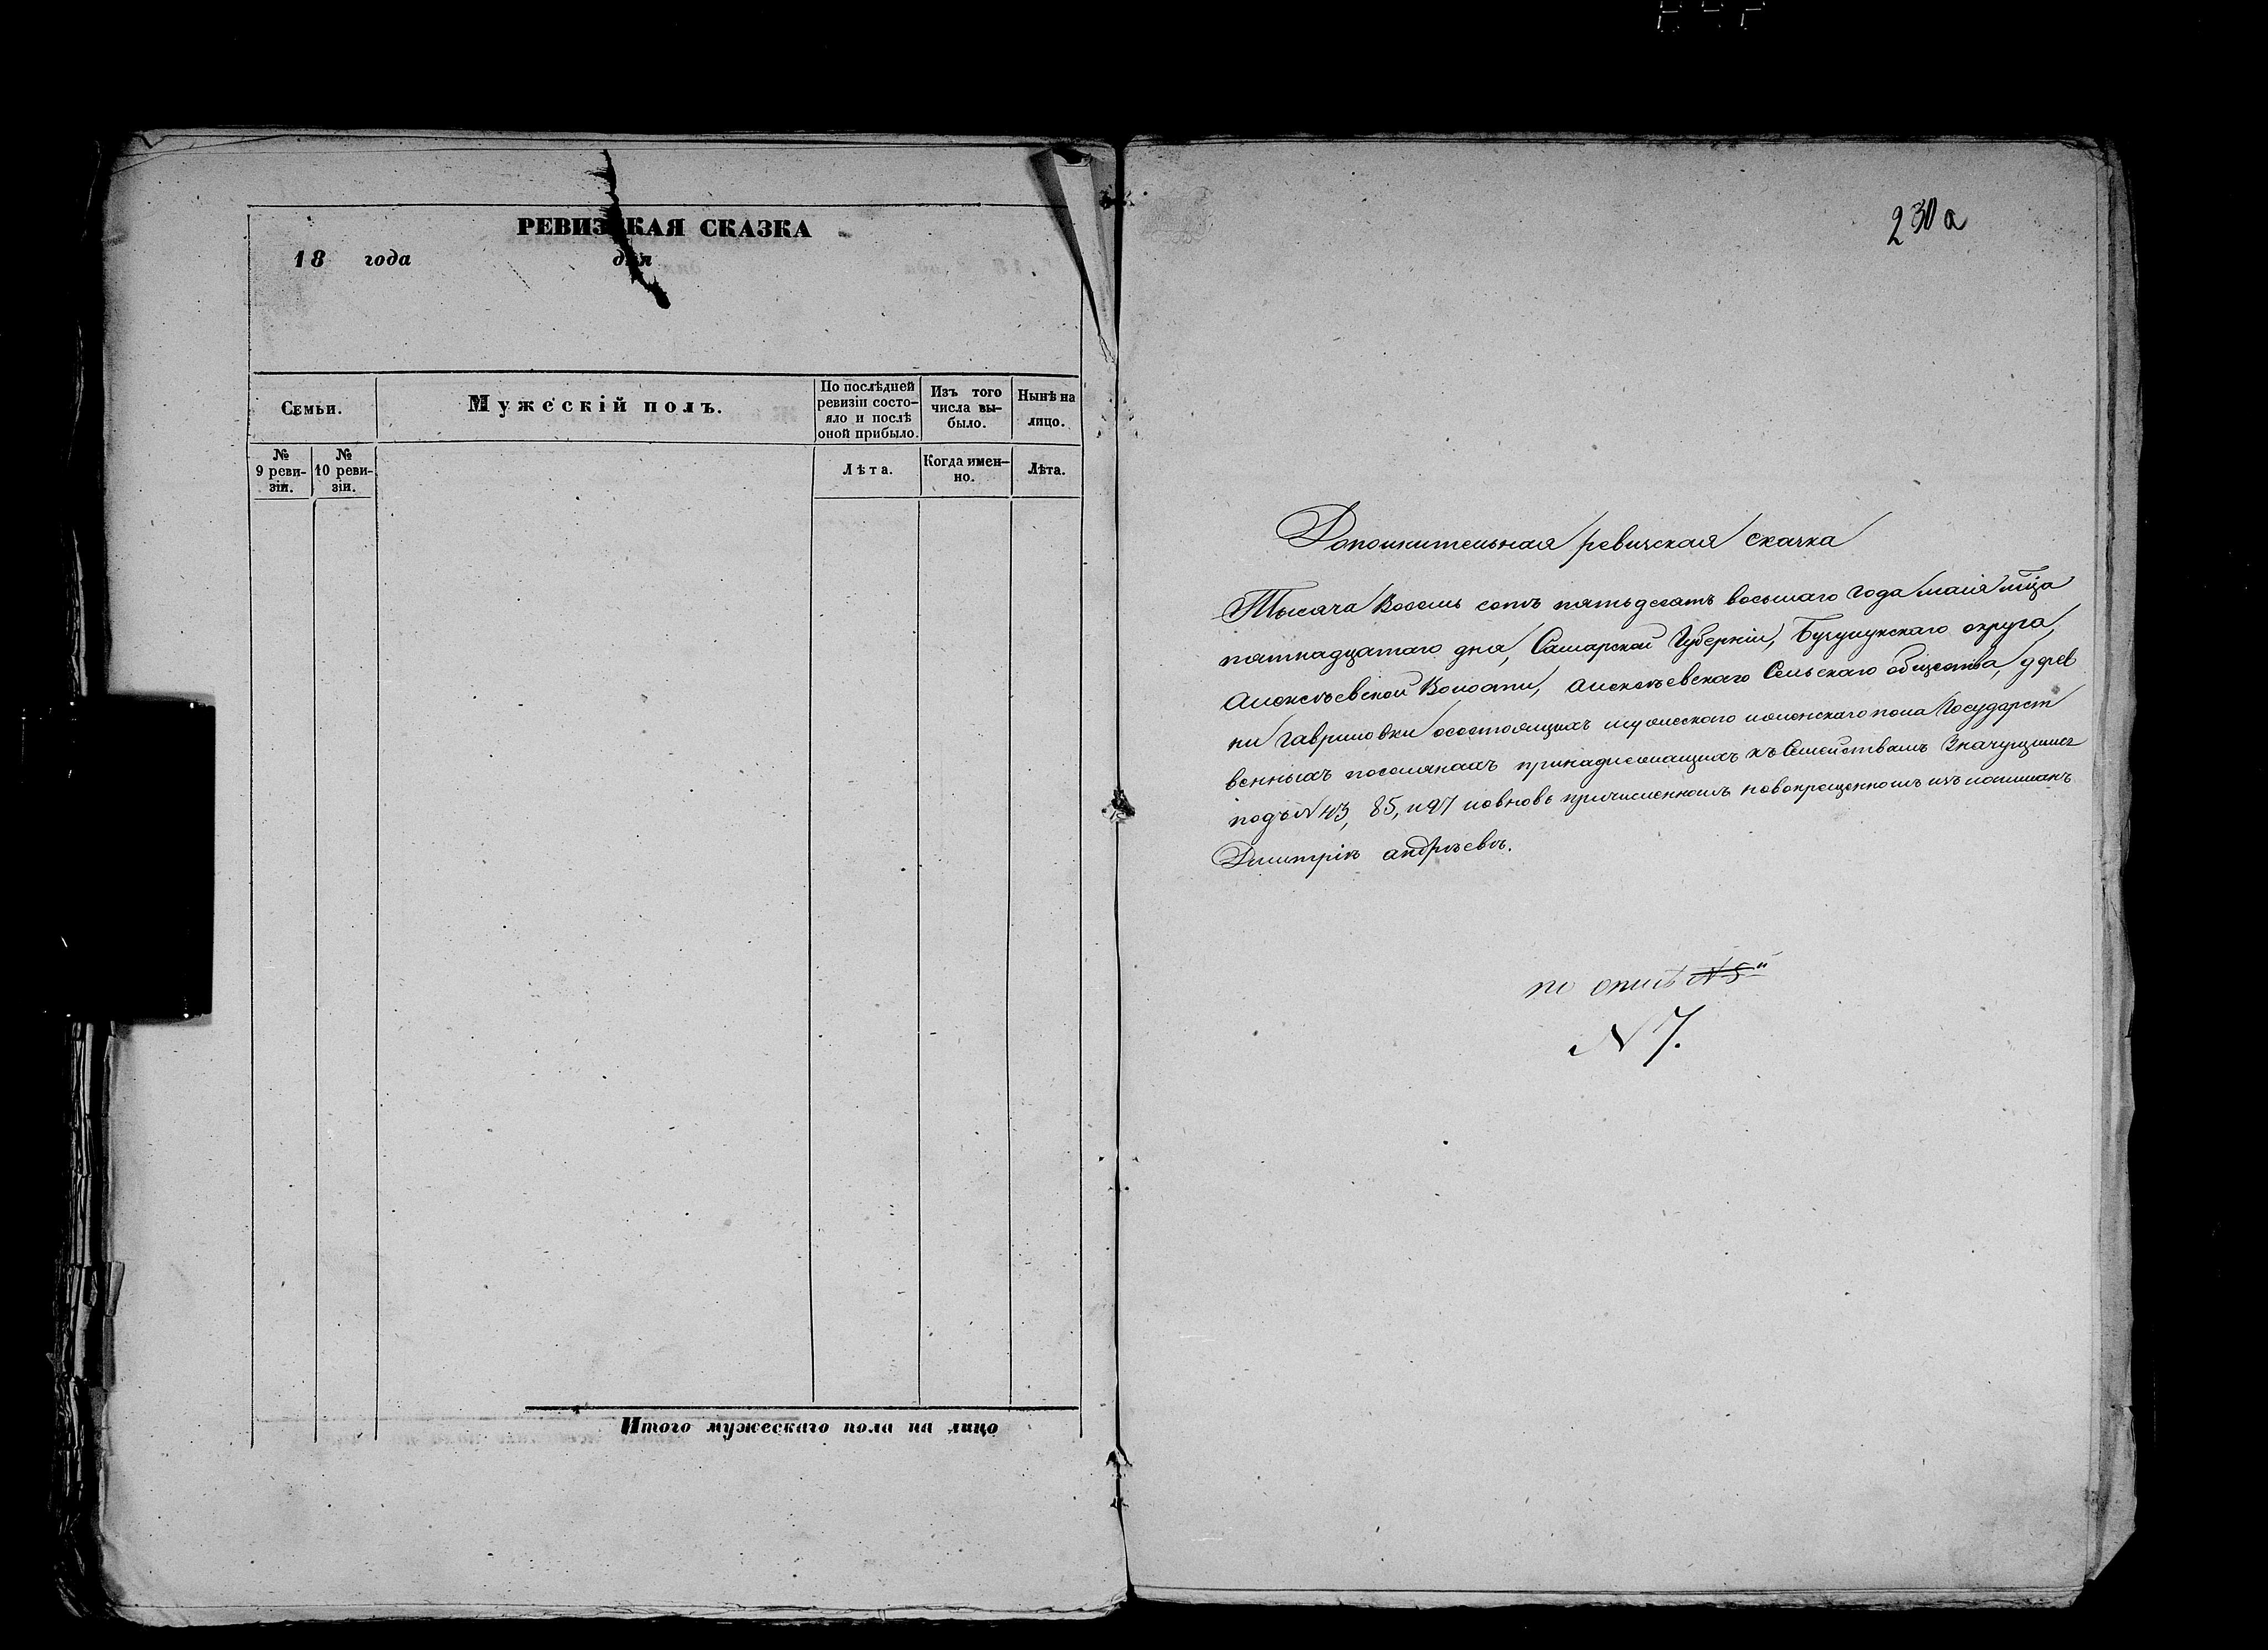 РЕВИЗСКАЯ СКАЗКА
18 года дня
Семьи.
Мужескій полъ.
По послѣдней
ревизіи состо-
яло и послѣ
оной прибыло.
Изъ того
числа вы-
было.
Нынѣ на
лицо.
№
9 реви-
зіи.
№
10 реви-
зіи.
Лѣта.
Когда имен-
но.
Лѣта.
Итого мужескаго пола на лицо
230 а
Дополнительная ревизская сказка
Тысяча Восемь сотъ пятьдесятъ восьмаго Года маія мѣца
пятнадцатаго дня, Самарской Губерніи, Бугульминскаго округа,
Алексѣевской Волости, Алексѣевскаго Сельскаго общества, дерев
ни Гавриловки осостоящихъ мужескаго иженскаго пола Государст
венныхъ поселянахъ принадлежащихъ къ Семействамъ Значущимся
подъ № 43, 85, и 97 и овновь причисленномъ новокрещенномъ изъ
Дмитріѣ андрѣевѣ.
по описѣ № 5й
№ 7.